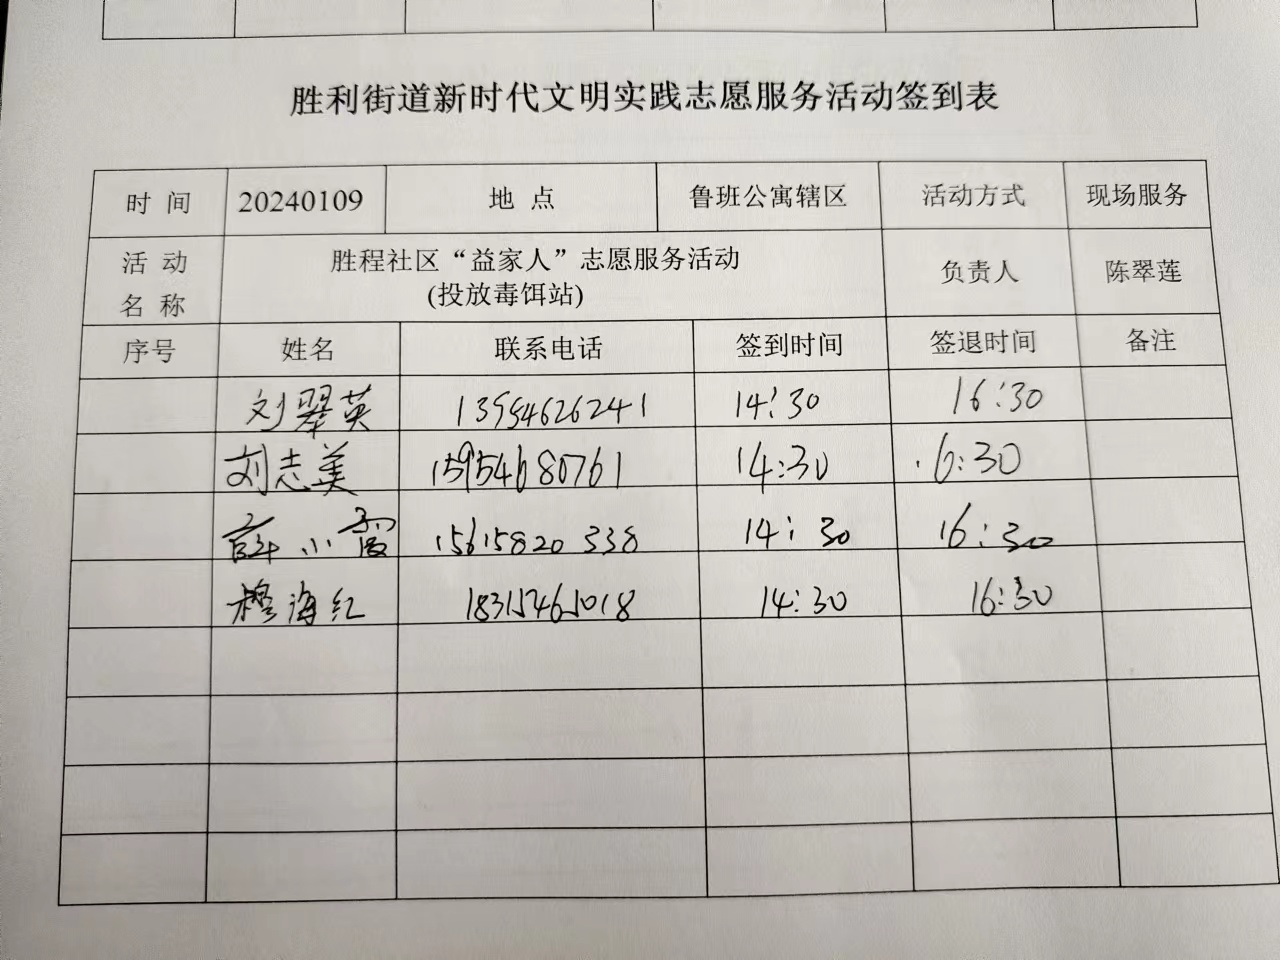 胜利街道新时代文明实践志愿服务活动签到表
时 间 20240109 地 点 鲁班公寓辖区 活动方式 现场服务
活 动 名 称 胜程社区“益家人”志愿服务活动 (投放毒饵站) 负责人 陈翠莲
序号 姓名 联系电话 签到时间 签退时间 备注
刘翠英 13954626241 14:30 16:30
刘志美 15954680761 14:30 16:30
薛小霞 15615820338 14:30 16:30
穆海红 18315465018 14:30 16:30